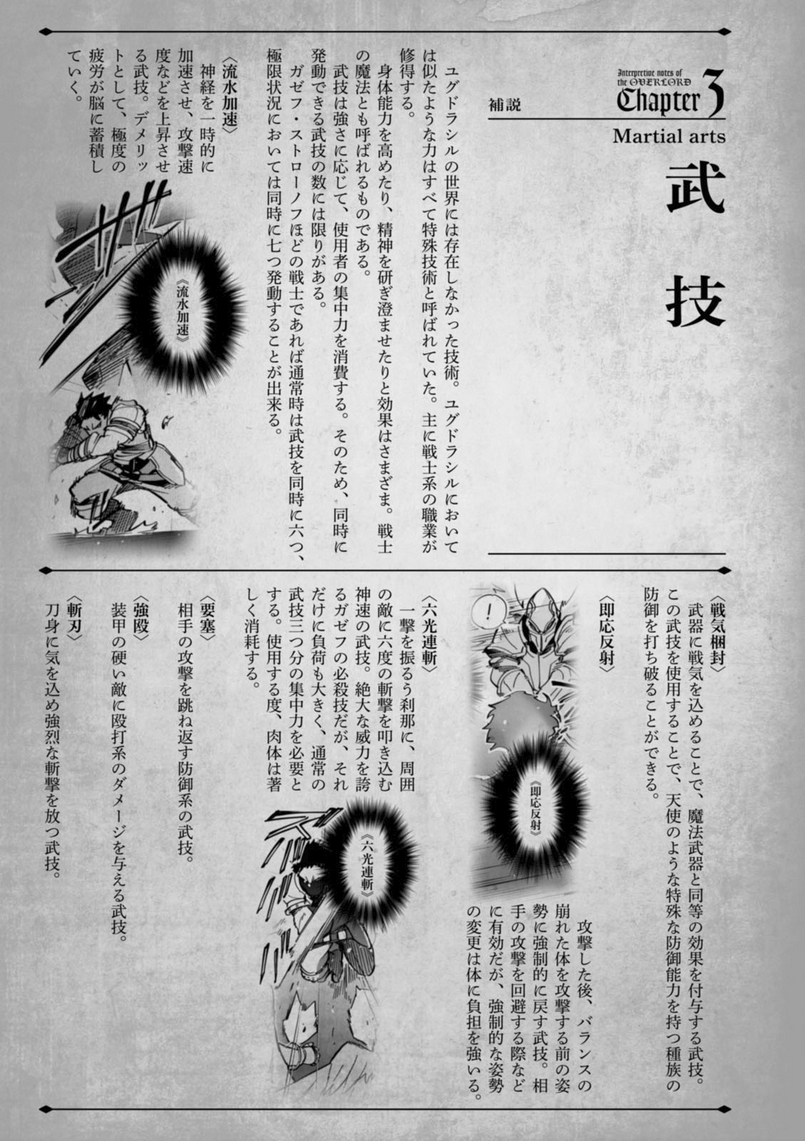 Interpretive notes of
the OVERLORD
Chapter 3
補説
Martial arts
武技
ユグドラシルの世界には存在しなかった技術。ユグドラシルにおいて
は似たような力はすべて特殊技術と呼ばれていた。主に戦士系の職業が
修得する。
身体能力を高めたり、精神を研ぎ澄ませたりと効果はさまざま。戦士
の魔法とも呼ばれるものである。
武技は強さに応じて、使用者の集中力を消費する。そのため、同時に
発動できる武技の数には限りがある。
ガゼフ・ストローノフほどの戦士であれば通常時は武技を同時に六つ、
極限状況においては同時に七つ発動することが出来る。
〈流水加速〉
神経を一時的に
加速させ、攻撃速
度などを上昇させ
る武技。デメリッ
トとして、極度の
疲労が脳に蓄積し
ていく。
《流水加速》
〈戦気梱封〉
武器に戦気を込めることで、魔法武器と同等の効果を付与する武技。
この武技を使用することで、天使のような特殊な防御能力を持つ種族の
防御を打ち破ることができる。
〈即応反射〉
！
《即応反射》
攻撃した後、バランスの
崩れた体を攻撃する前の姿
勢に強制的に戻す武技。相
手の攻撃を回避する際など
に有効だが、強制的な姿勢
の変更は体に負担を強いる。
〈六光連斬〉
一撃を振るう刹那に、周囲
の敵に六度の斬撃を叩き込む
神速の武技。絶大な威力を誇
るガゼフの必殺技だが、それ
だけに負荷も大きく、通常の
武技三つ分の集中力を必要と
する。使用する度、肉体は著
しく消耗する。
《六光連斬》
〈要塞〉
相手の攻撃を跳ね返す防御系の武技。
〈強殴〉
装甲の硬い敵に殴打系のダメージを与える武技。
〈斬刃〉
刀身に気を込め強烈な斬撃を放つ武技。